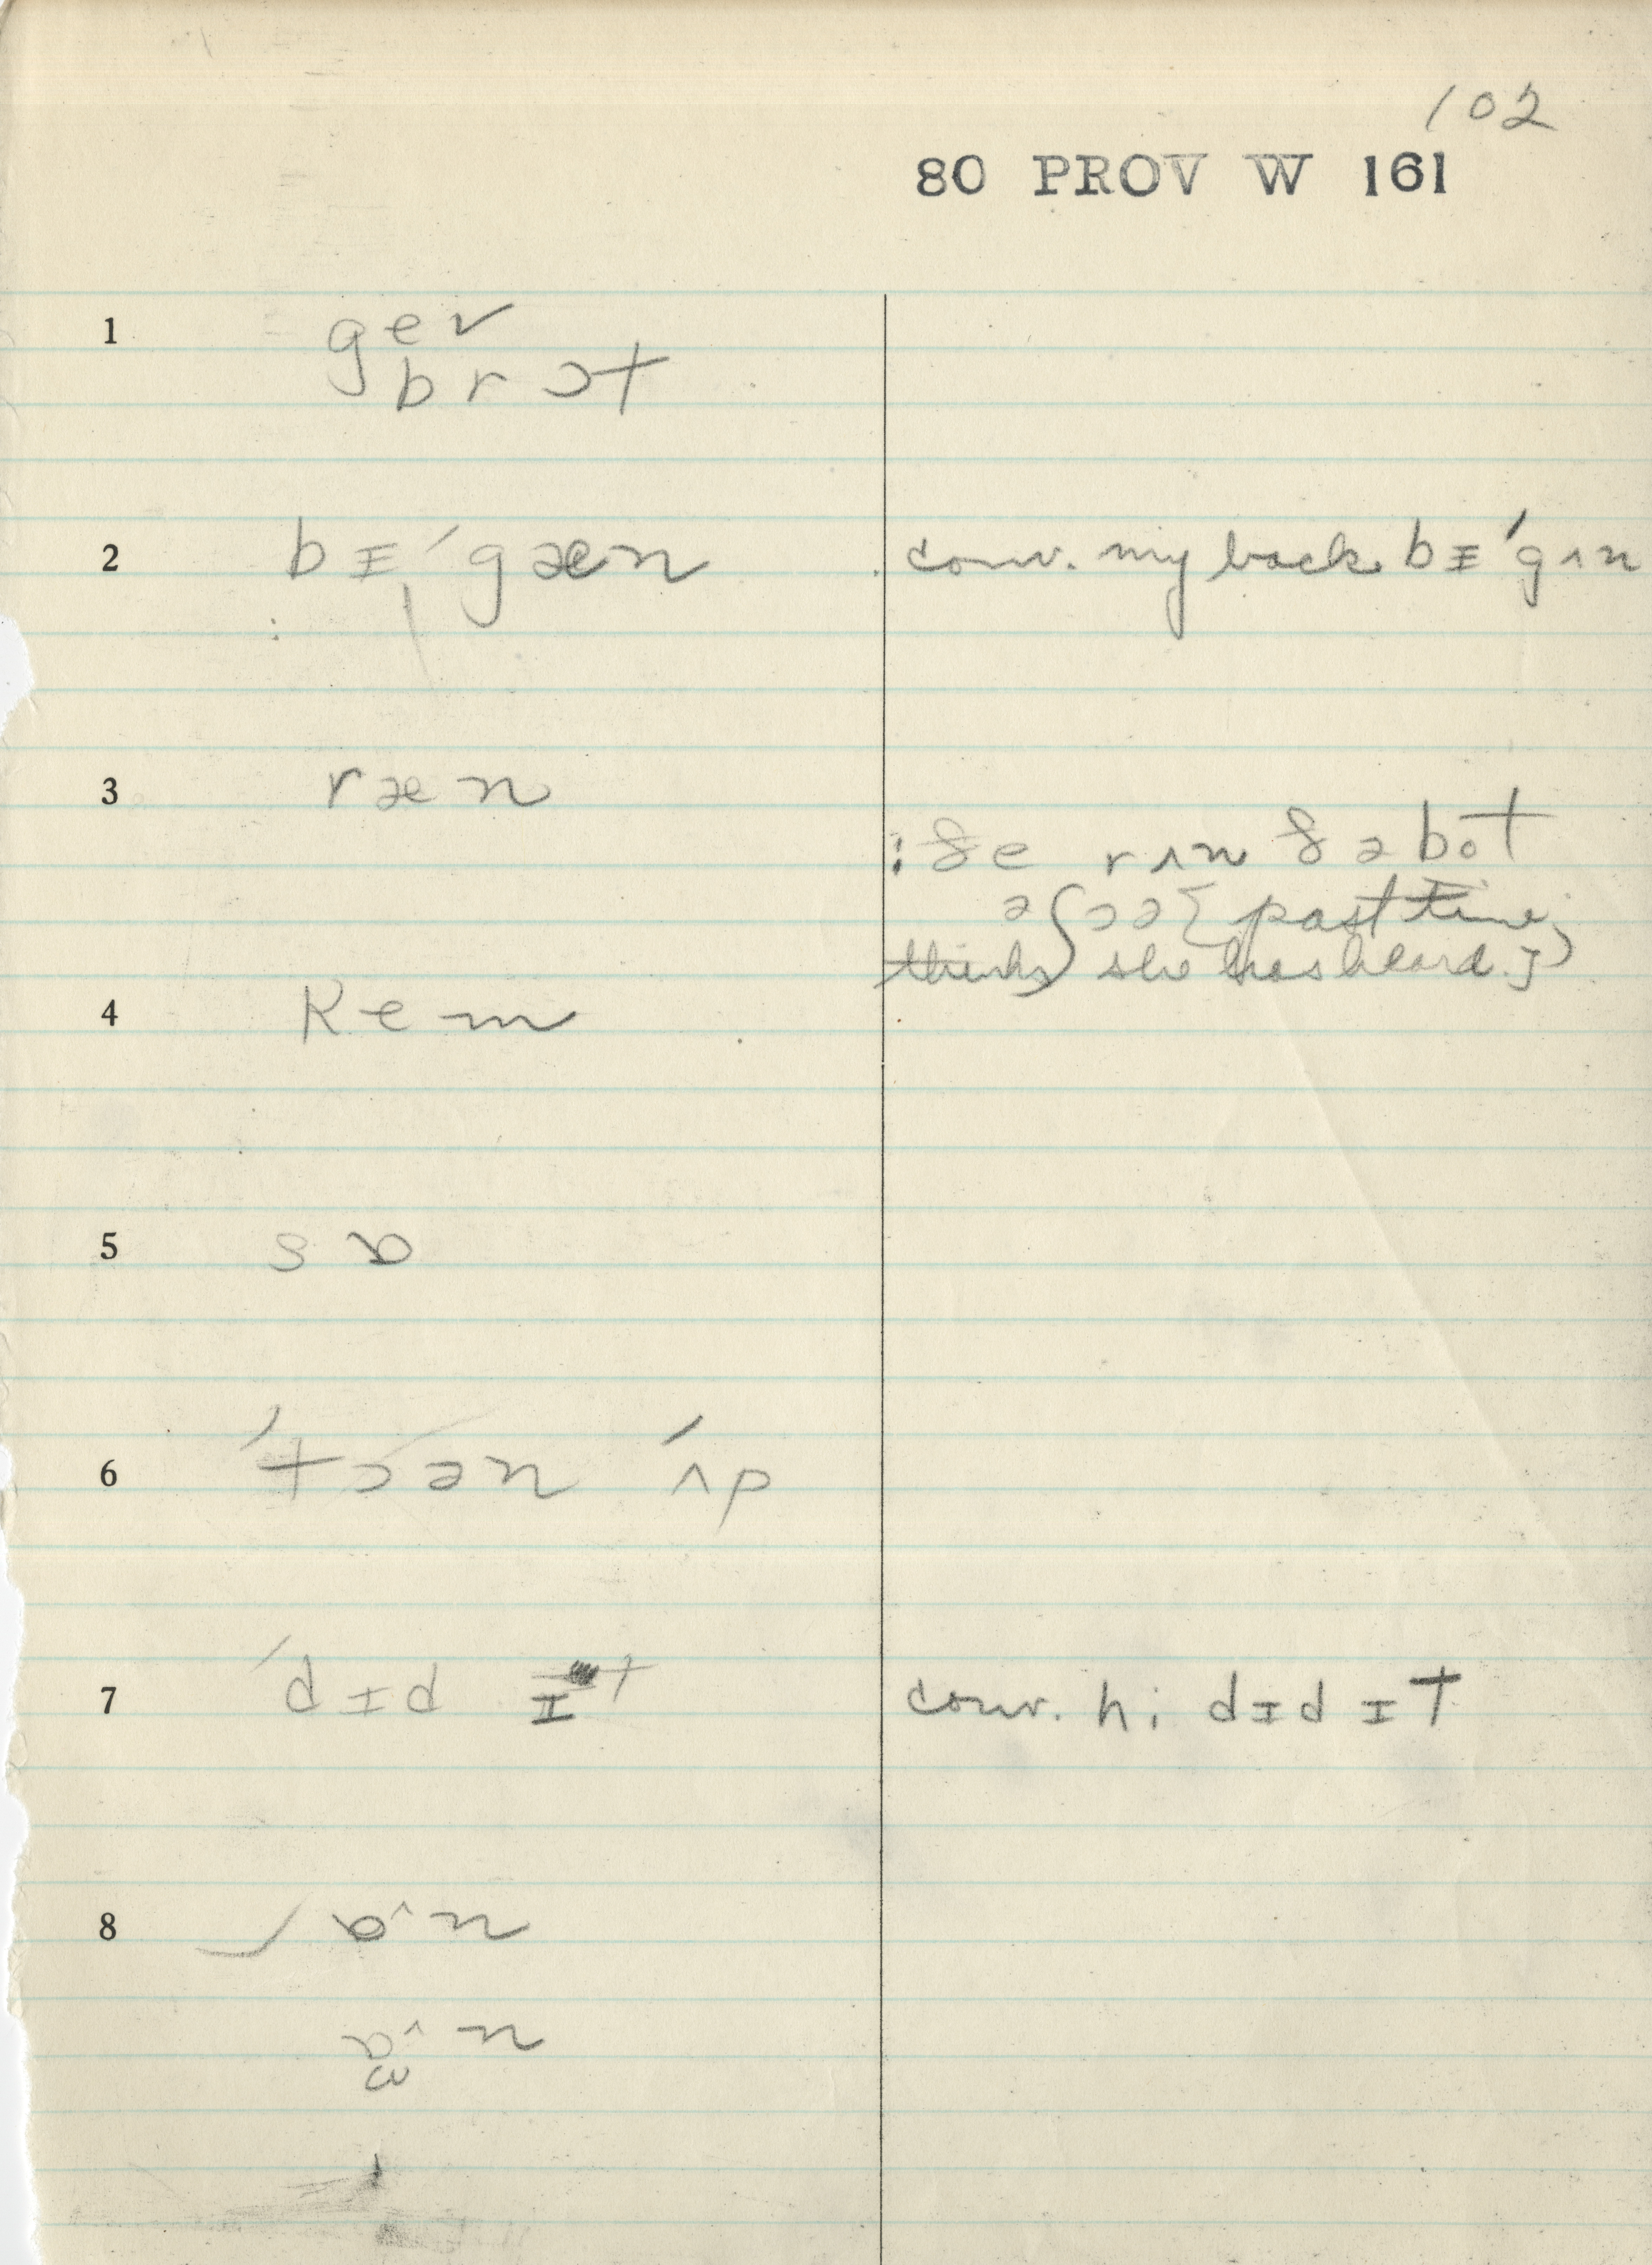 102
80 PROV W 161
1 gev
brɔt
2 bɪˈgæn conv. my back bɪˈgʌn
3 ræn
: ðe rʌn ðə bot
əʃɔə [past time;
thinks she has heard.]
4 kem
5 sɒ
6 ˈtɔən ˈʌp
7 ˈdɪd ɪt conv. hi dɪd ɪt
8 ɒ^n
ɒ^n
ω